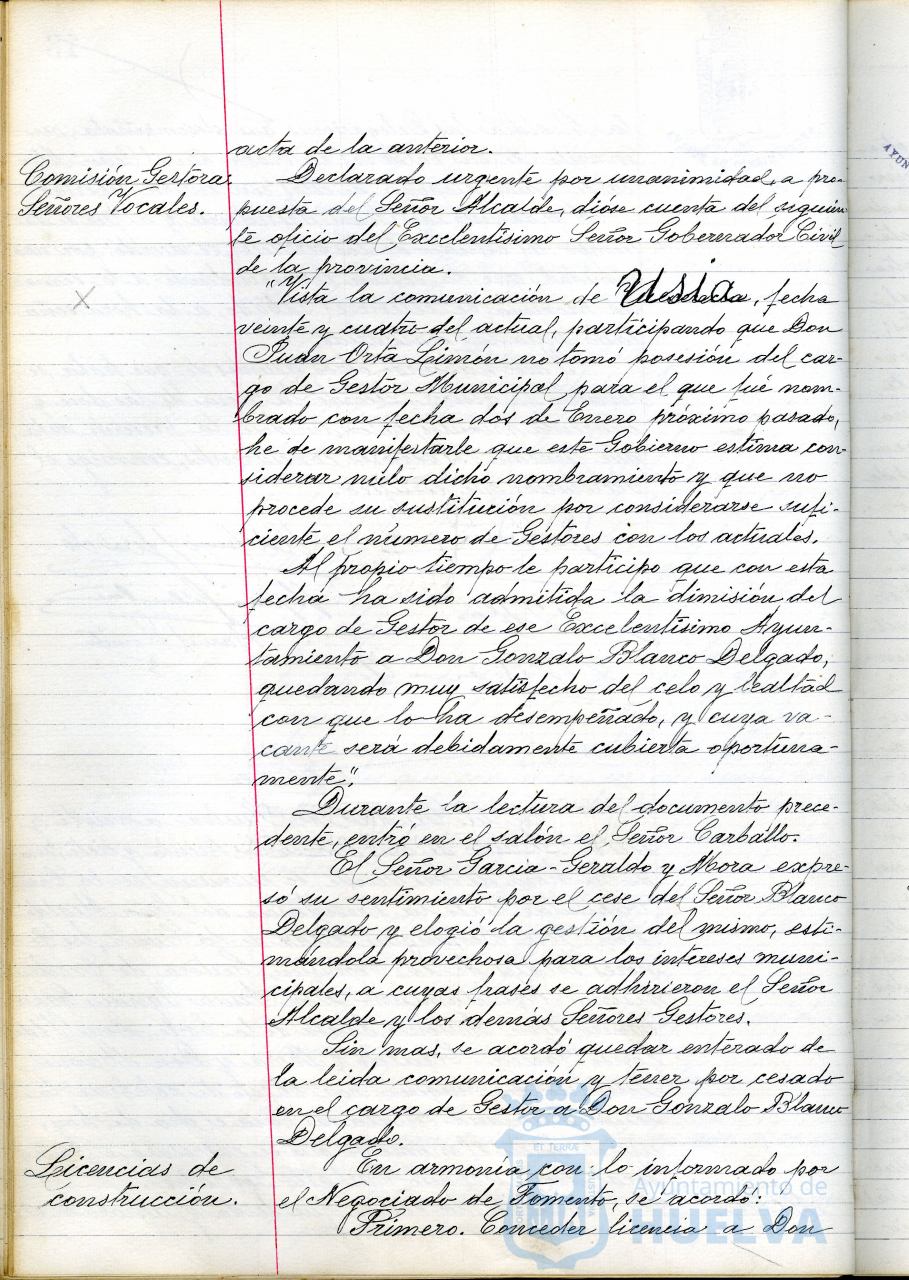 acta de la anterior.
Comisión Gestora.
Señores Vocales.
Declarado urgente por unanimidad, a pro-
puesta del Señor Alcalde, dióse cuenta del siguien-
te oficio del Excelentísimo Señor Gobernador Civil
de la provincia.
"Vista la comunicación de Usia, fecha
veinte y cuatro del actual, participando que Don
Juan Orta Limón no tomó posesión del car-
go de Gestor Municipal para el que fué nom-
brado con fecha dos de Enero próximo pasado,
he de manifestarle que este Gobierno estima con-
siderar nulo dicho nombramiento y que no
procede su sustitución por considerarse sufi-
ciente el número de Gestores con los actuales.
Al propio tiempo le participo que con esta
fecha ha sido admitida la dimisión del
cargo de Gestor de ese Excelentísimo Ayun-
tamiento a Don Gonzalo Blanco Delgado,
quedando muy satisfecho del celo y lealtad
con que lo ha desempeñado, y cuya va-
cante será debidamente cubierta oportuna-
mente".
Durante la lectura del documento prece-
dente, entró en el salón el Señor Carballo.
El Señor Garcia-Geraldo y Mora expre-
só su sentimiento por el cese del Señor Blanco
Delgado y elogió la gestión del mismo, esti-
mándola provechosa para los intereses muni-
cipales, a cuyas frases se adhirieron el Señor
Alcalde y los demás Señores Gestores.
Sin mas, se acordó quedar enterado de
la leida comunicación y tener por cesado
en el cargo de Gestor a Don Gonzalo Blanco
Delgado.
Licencias de
construcción.
En armonía con lo informado por
el Negociado de Fomento, se acordó:
Primero. Conceder licencia a Don
Ayuntamiento de
HUELVA